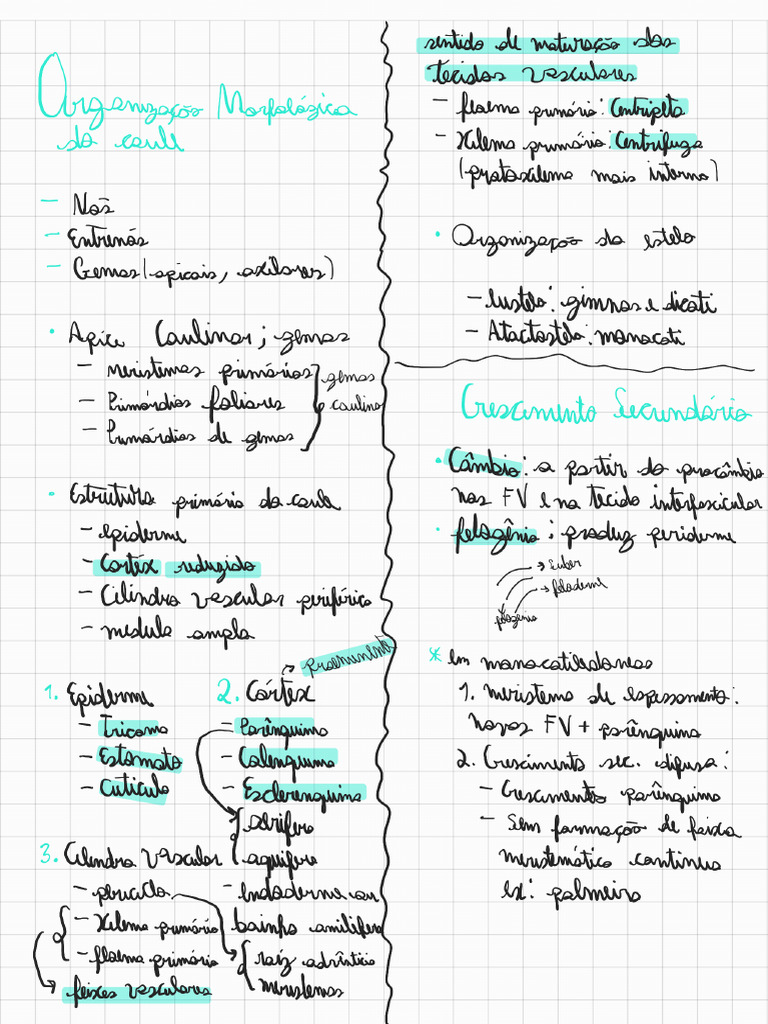 Organização Morfológica
do caule
- Nós
- Entrenós
- Gemas (apicais, axilares)
• Ápice Caulinar; gemas
- meristemas primários
- Primórdios foliares
- Primórdios de gemas
gemas
caulina
• Estrutura primária do caule
- epiderme
- Cortéx reduzido
- Cilindro vascular periférico
- medula ampla
1. Epiderme
- Tricoma
- Estomato
- Cutícula
2. Córtex
→ proeminente
- Parênquima
- Colenquima
- Esclerenquima
aerífero
aquífero
- Endoderme ou
bainha amilífera
3. Cilindro Vascular
- periciclo
- Xilema primário
- floema primário
→ feixes vasculares
raíz advêntícia
meristemas
sentido de maturação dos
tecidos vasculares
- floema primário: Centrípeta
- Xilema primário: Centrífuga
(protoxilema mais interno)
• Organização do estelo
- Eustelo: gimnos e dicoti
- Atactostelo: monocoti
Crescimento Secundário
• Câmbio: a partir do procâmbio
nos FV e no tecido interfascicular
• felogênio: produz periderme
→ Suber
→ feloderme
felogênio
* em monocotiledoneas
1. meristema de espessamento:
novos FV + parênquima
2. Crescimento sec. difuso:
- Crescimento parênquima
- Sem formação de faixa
meristemática contínua
ex: palmeira